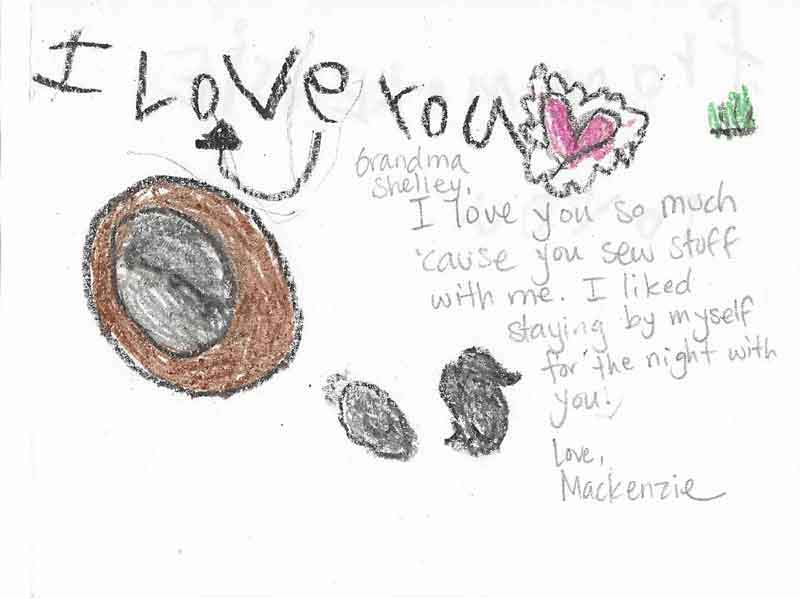 I Love You
Grandma
Shelley,
I love you so much
'cause you sew stuff
with me. I liked
staying by myself
for the night with
you!
Love,
Mackenzie